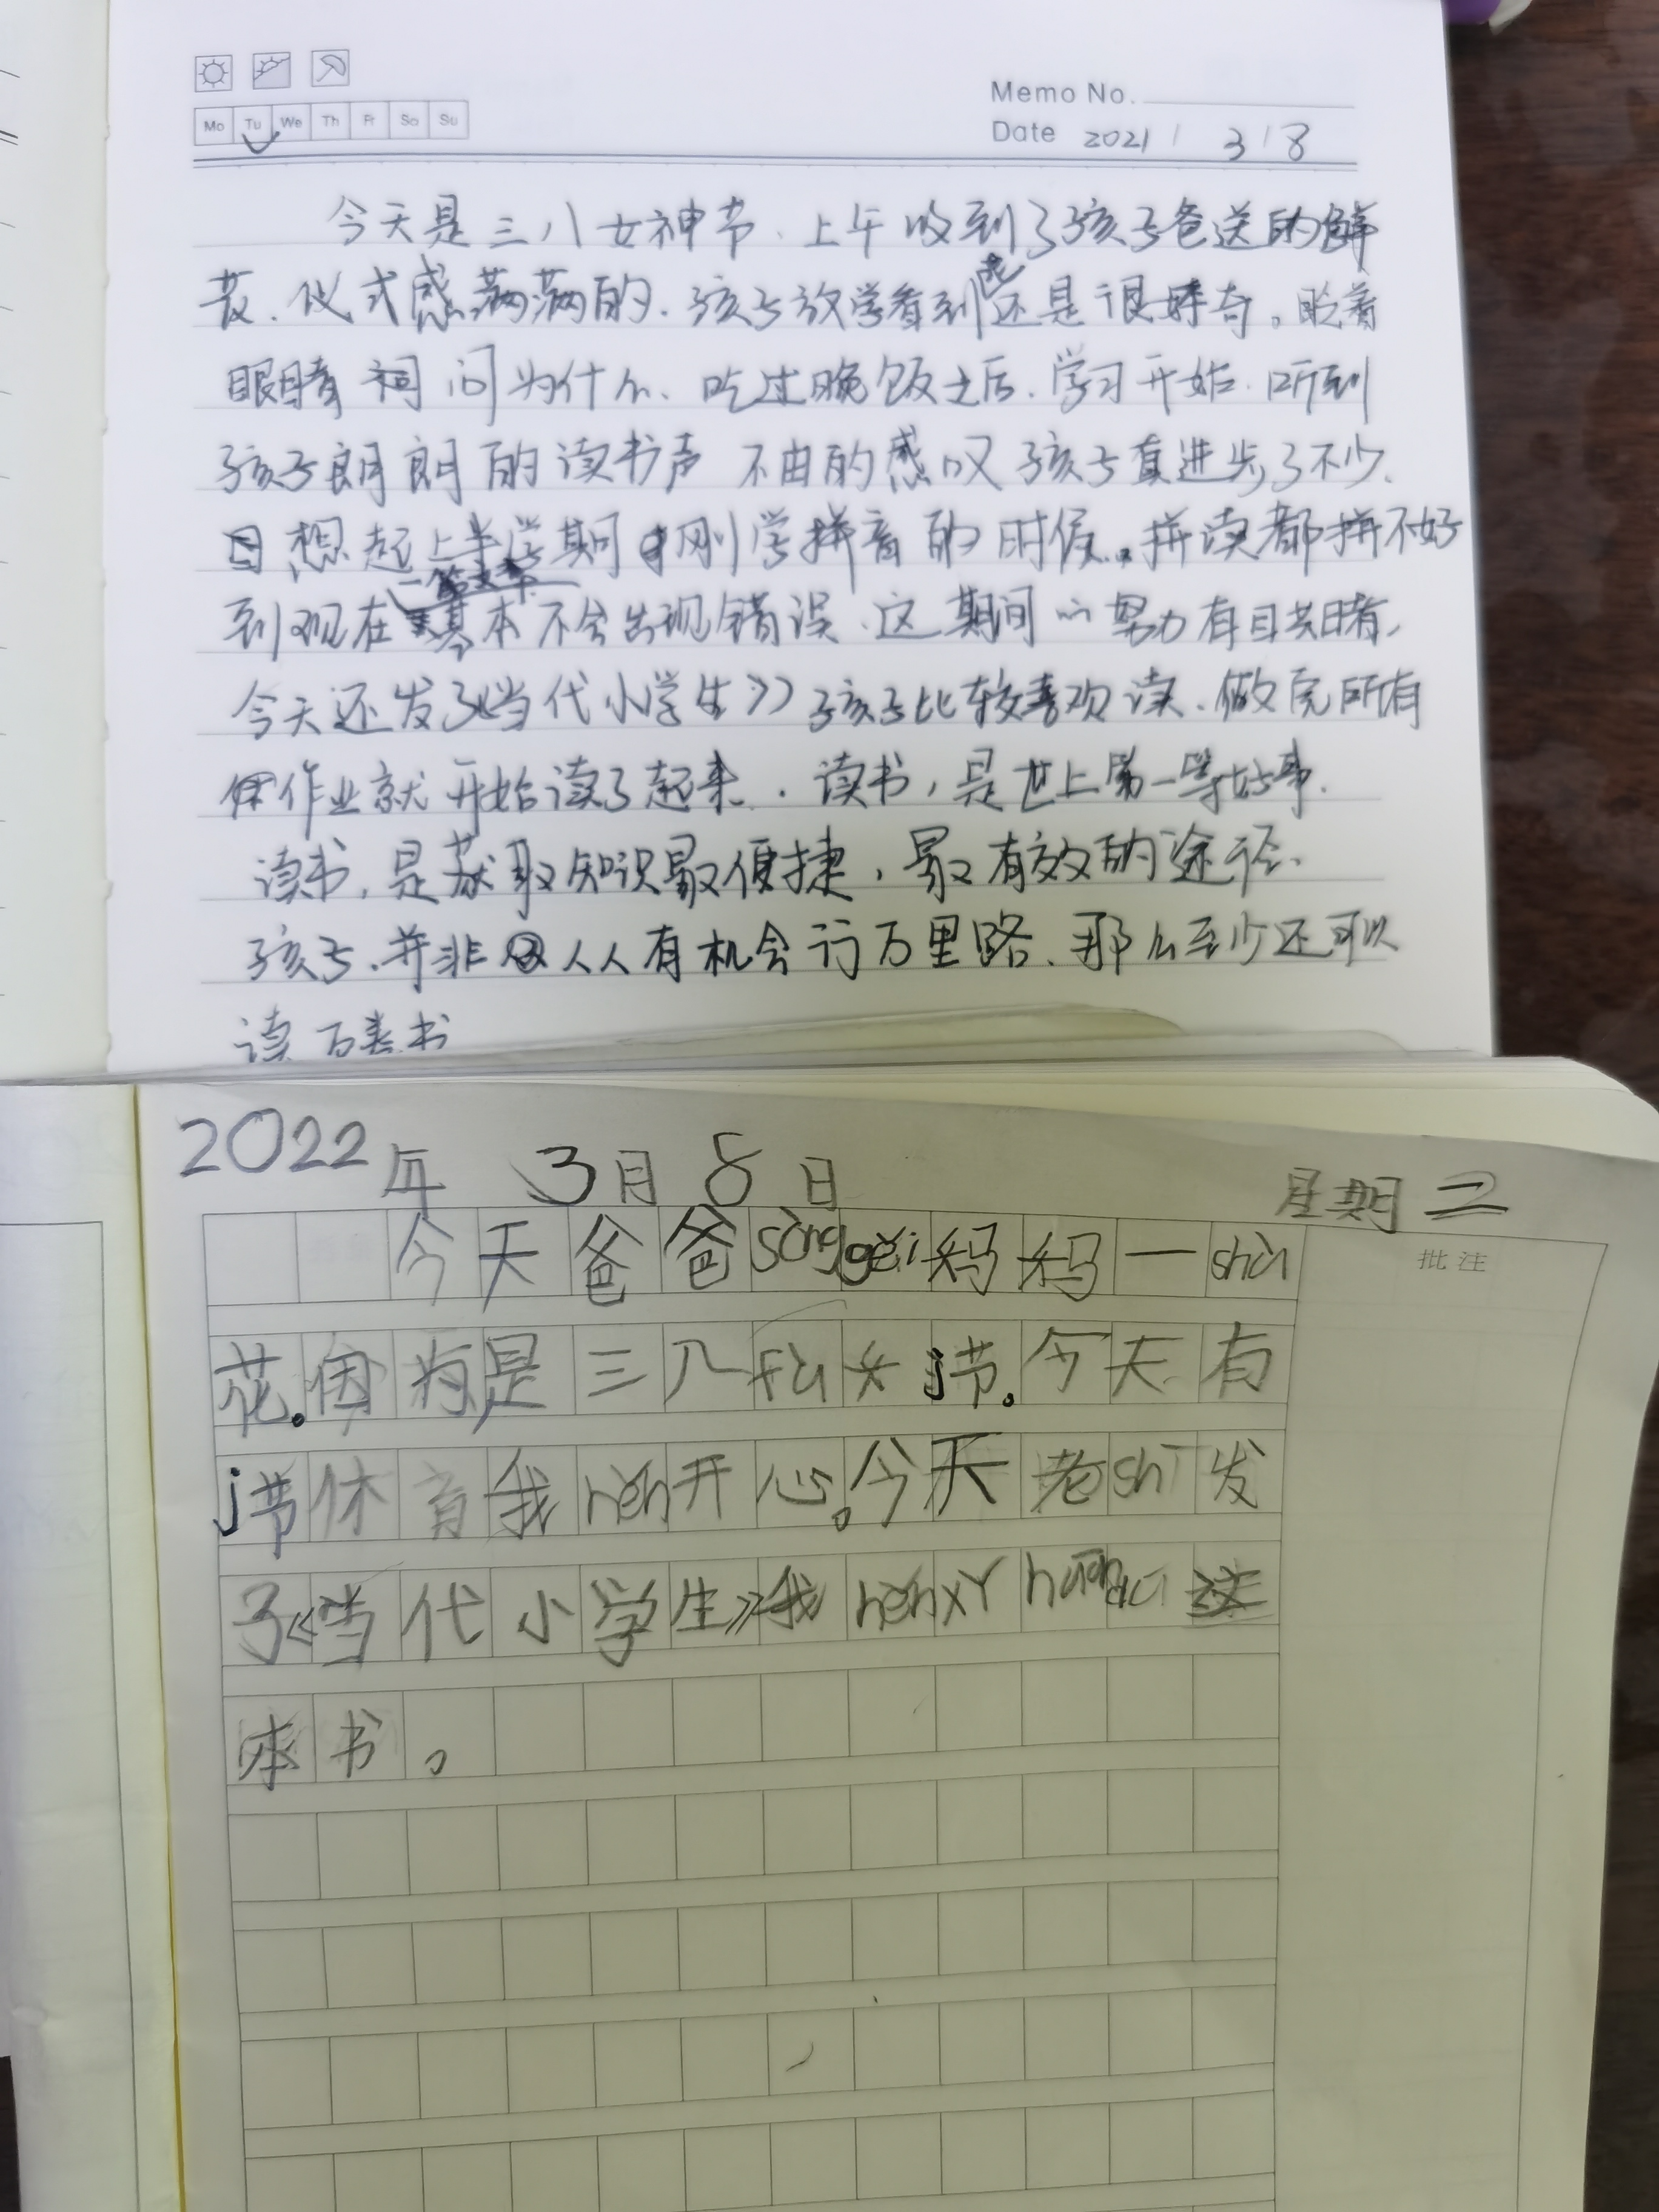 Memo No.
Mo Tu We Th Fr Sa Su
Date 2021 / 3 / 8
今天是三八女神节、上午收到了孩子爸送的鲜
花、仪式感满满的.孩子放学看到花还是很好奇。眨着
眼睛 问为什么、吃过晚饭之后.学习开始.听到
孩子朗朗的读书声 不由的感叹 孩子真进步了不少、
想起上半学期刚学拼音的时候.拼读都拼不好
到现在基本不会出现错误、这期间的努力有目共睹、
今天还发了《当代小学生》孩子比较喜欢读、做完所有
作业就开始读了起来.读书,是世上第一等好事.
读书,是获取知识最便捷,最有效的途径、
孩子、并非人人有机会行万里路、那么至少还可以
读万卷书
2022年 3月 8日 星期二
批注
今天爸爸sòng gěi妈妈一shù
花。因为是三八fù女j节。今天有
j节体育我hěn开心。今天老shī发
了《当代小学生》我hěn xǐ huān dú 这
本书。